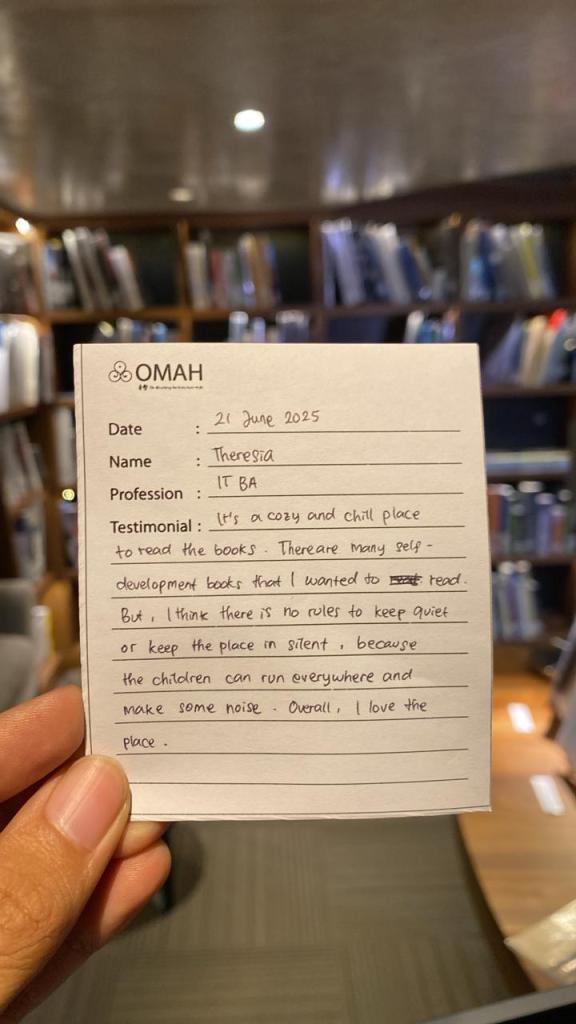 OMAH
Date : 21 June 2025
Name : Theresia
Profession : IT BA
Testimonial : It's a cozy and chill place
to read the books. There are many self-
development books that I wanted to read.
But, I think there is no rules to keep quiet
or keep the place in silent, because
the children can run everywhere and
make some noise. Overall, I love the
place.